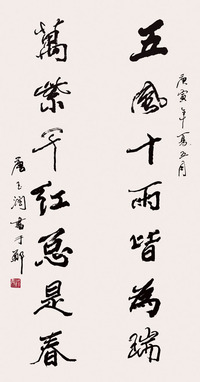 五風十雨皆為瑞
庚寅年夏五月
萬紫千紅總是春
書於鄭